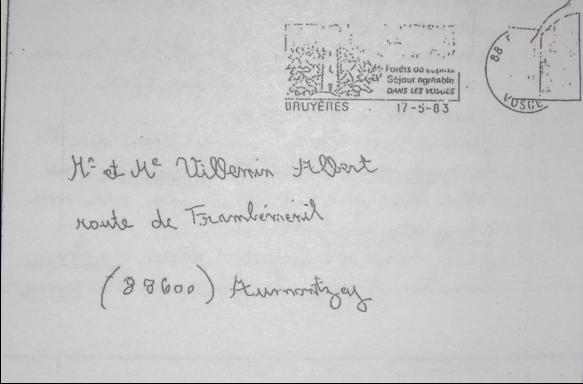 88
Forêts de sapins
Séjour agréable
DANS LES VOSGES
BRUYÈRES 17-5-83
VOSGE
Mr et Me Villemin Albert
route de Frambéménil
(88600) Aumontzey